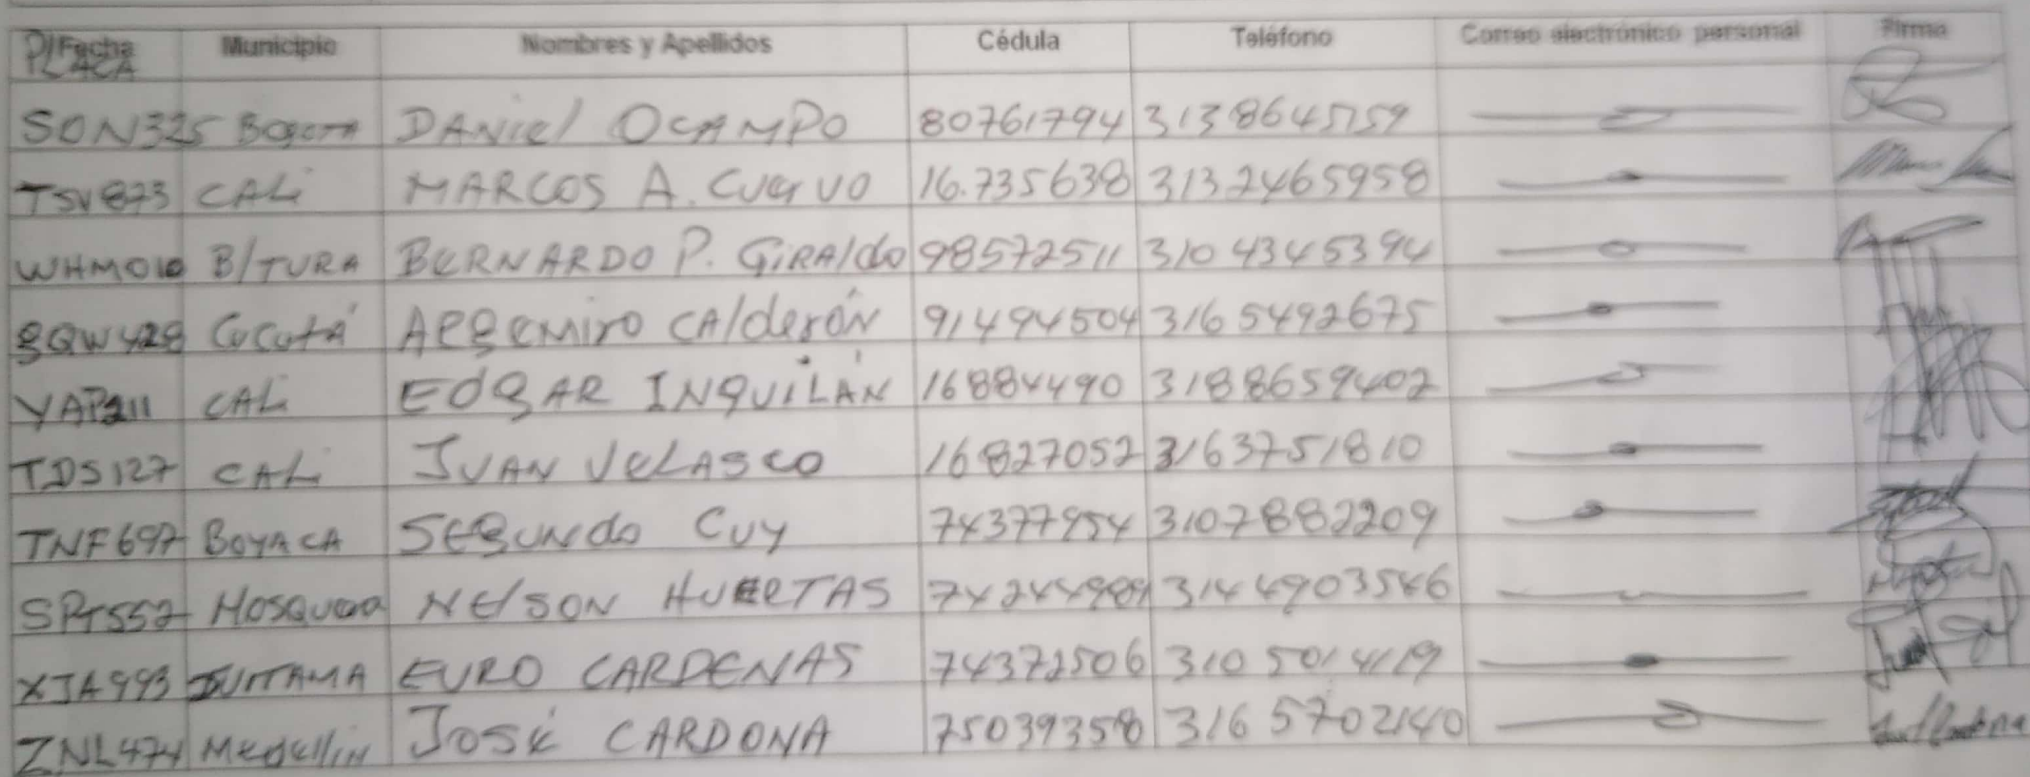 Fecha PLACA Municipio Nombres y Apellidos Cédula Teléfono Correo electrónico personal Firma
SON325 Bogota DANIEL OCAMPO 80761794 3138645759
TSV873 CALi MARCOS A. CUERVO 16.735638 3132465958
WHM010 B/TURA BERNARDO P. GiRAldo 98572511 3104345394
SQW428 CúCutá ARgEMiro CAlderón 91494504 3165492675
YAP211 CALi EDgAR INQUILÁN 16884490 3188659402
TDS127 CALi JUAN VELASCO 16827052 3163751810
TNF697 BOYACA SEGUNdo CUY 74377954 3107882209
SPT552 MOSQUERA NElSON HUERTAS 74244989 3144903546
XJA993 DUITAMA EURO CARDENAS 74372506 3105014119
ZNL474 Medellin JOSÉ CARDONA 75039358 3165702140